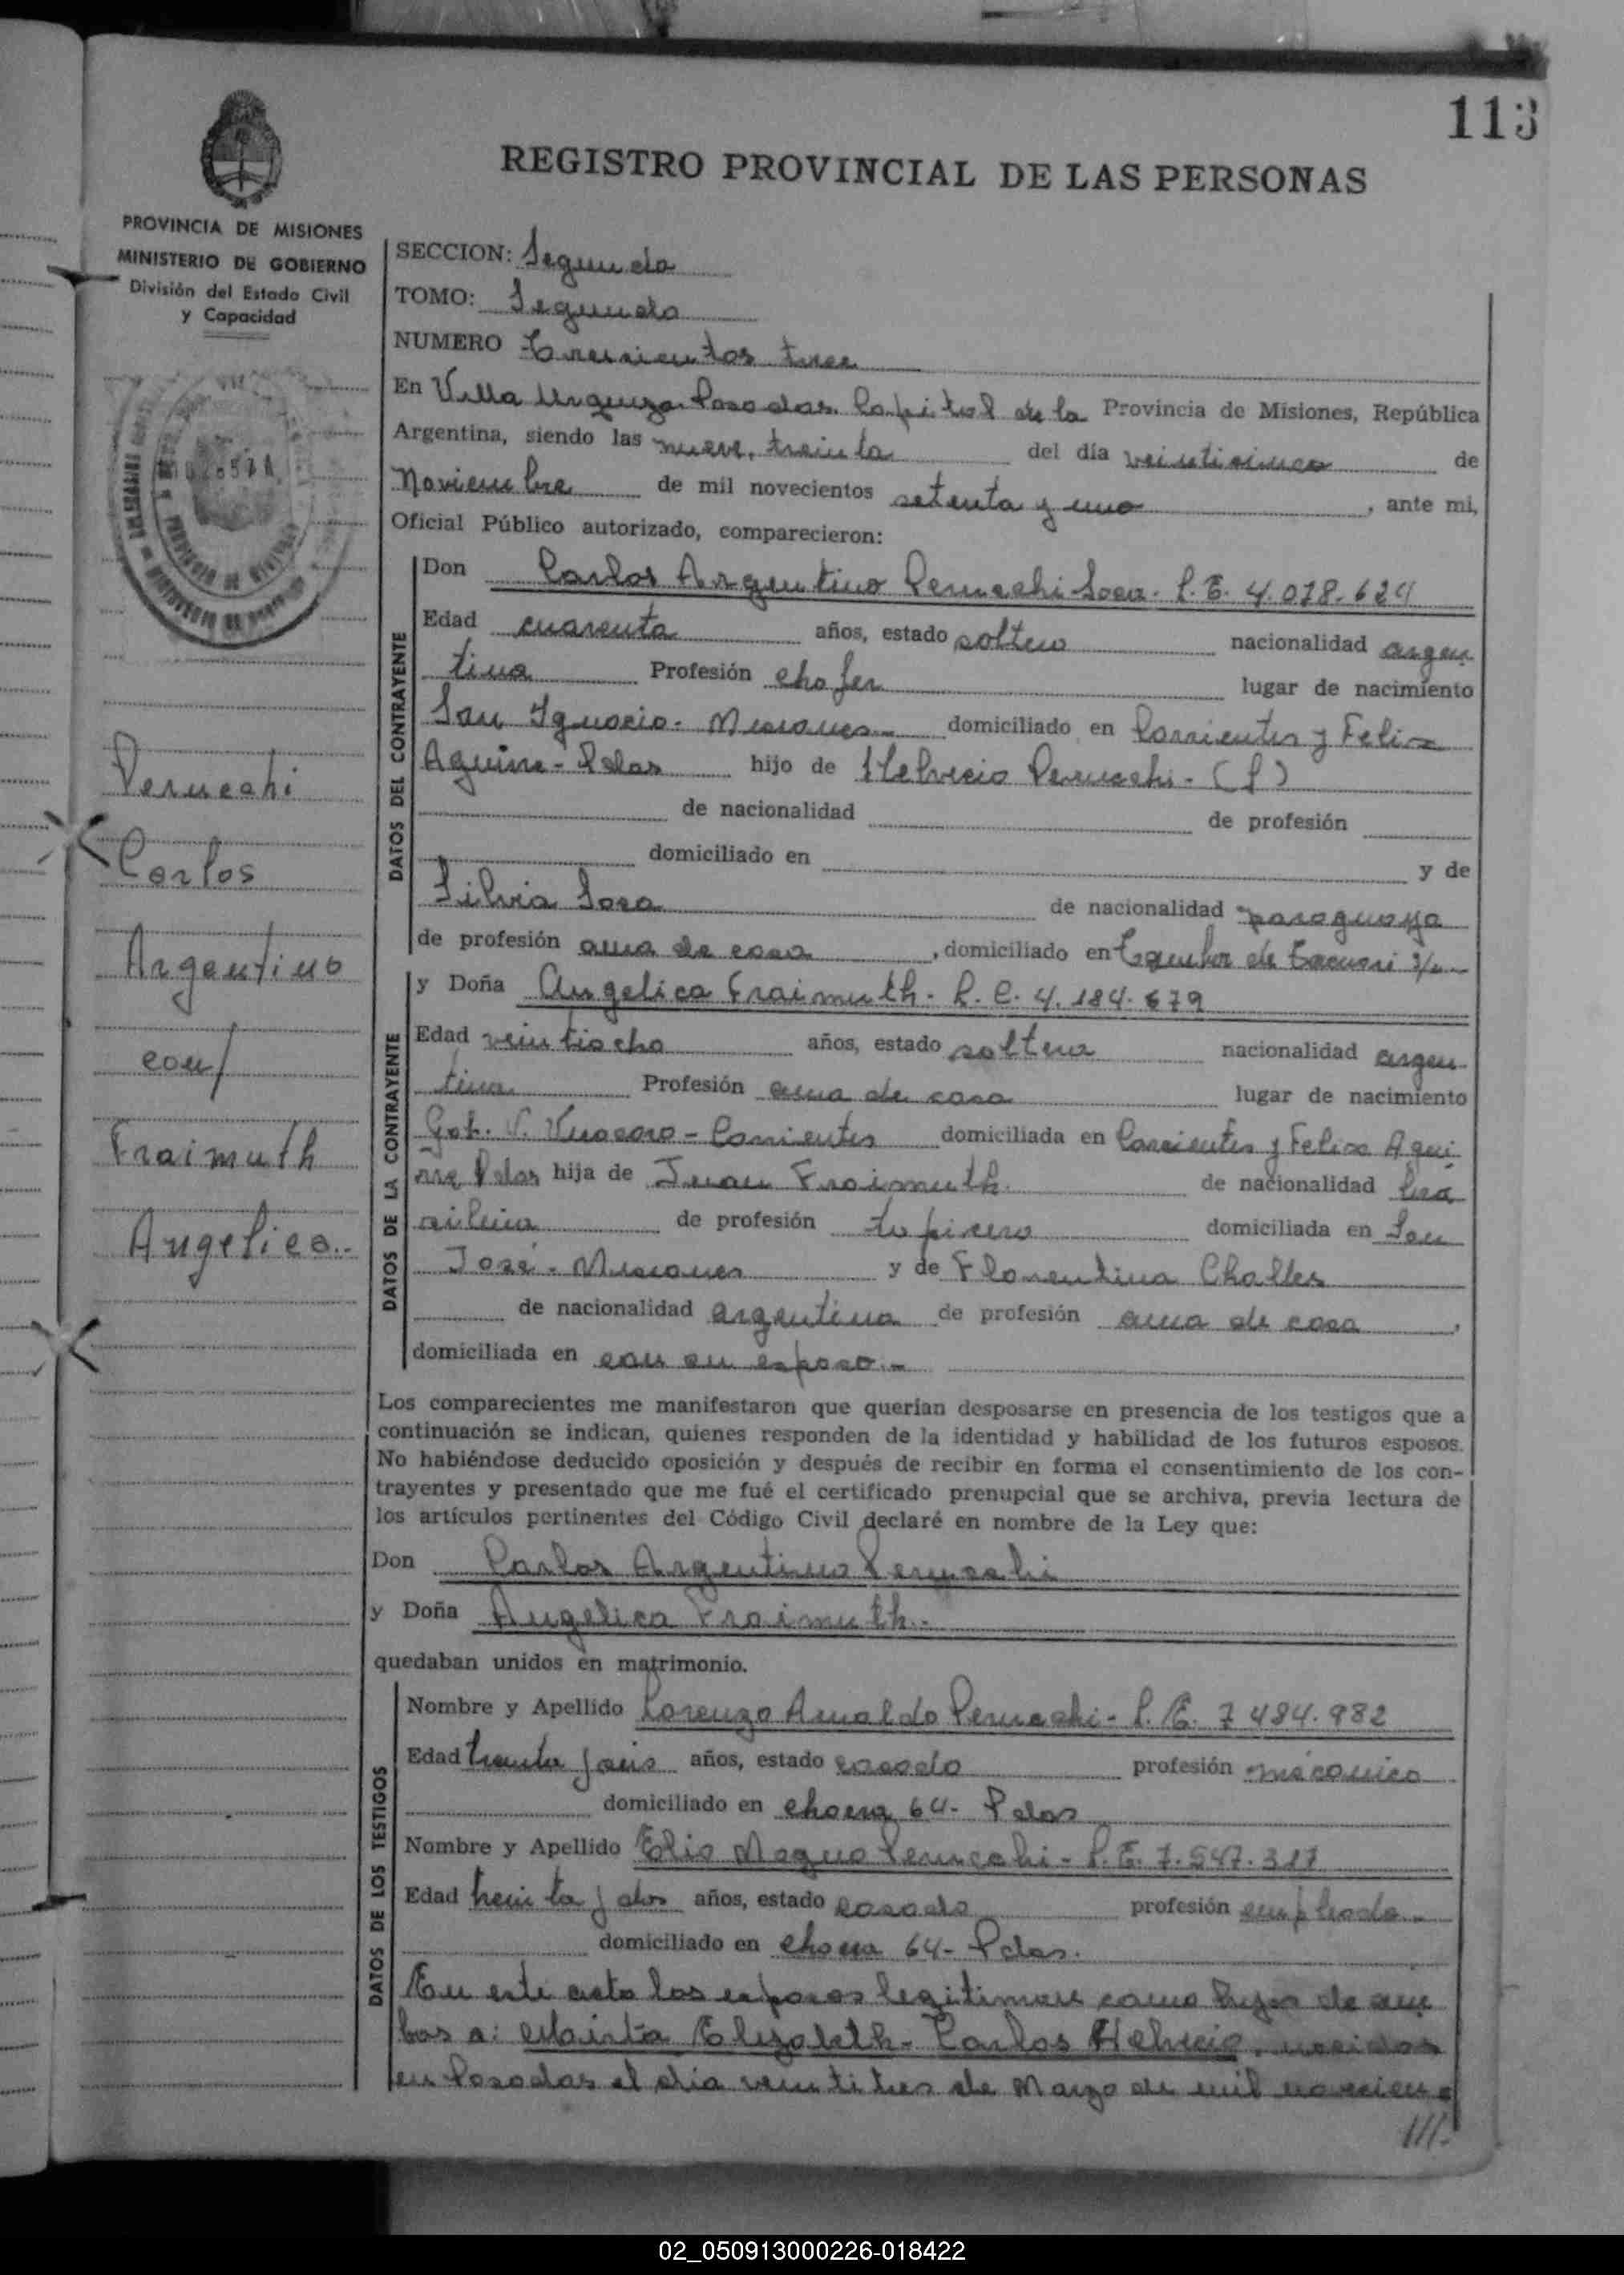 113
REGISTRO PROVINCIAL DE LAS PERSONAS
PROVINCIA DE MISIONES
MINISTERIO DE GOBIERNO
División del Estado Civil
y Capacidad
SECCION: Segunda
TOMO: Segundo
NUMERO Trescientos trece
En Villa Urquiza Posadas Capital de la Provincia de Misiones, República
Argentina, siendo las nueve, treinta del día veinticinco de
Noviembre de mil novecientos setenta y uno, ante mi,
Oficial Público autorizado, comparecieron:
DATOS DEL CONTRAYENTE
Don Carlos Argentino Peruchi Sosa. L. E. 4.078.624
Edad cuarenta años, estado soltero nacionalidad argen
tina Profesión chofer lugar de nacimiento
San Ignacio. Misiones domiciliado en Corrientes y Felix
Aguirre - Pdas hijo de Helvecio Peruchi - (f)
de nacionalidad de profesión
domiciliado en y de
Silvia Sosa de nacionalidad paraguaya
de profesión ama de casa, domiciliado en de
DATOS DE LA CONTRAYENTE
y Doña Angelica Fraimuth. L. C. 4.184.679
Edad veintiocho años, estado soltera nacionalidad argen
tina Profesión ama de casa lugar de nacimiento
Gob. V. Virasoro - Corrientes domiciliada en Corrientes y Felix Agui
rre Pdas hija de Juan Fraimuth de nacionalidad bra
silera de profesión domiciliada en San
José. Misiones y de Florentina Challes
de nacionalidad argentina de profesión ama de casa,
domiciliada en con su esposo.-
Los comparecientes me manifestaron que querían desposarse en presencia de los testigos que a
continuación se indican, quienes responden de la identidad y habilidad de los futuros esposos.
No habiéndose deducido oposición y después de recibir en forma el consentimiento de los con-
trayentes y presentado que me fué el certificado prenupcial que se archiva, previa lectura de
los artículos pertinentes del Código Civil declaré en nombre de la Ley que:
Don Carlos Argentino Peruchi
y Doña Angelica Fraimuth.-
quedaban unidos en matrimonio.
DATOS DE LOS TESTIGOS
Nombre y Apellido Lorenzo Arnaldo Peruchi - L. E. 7 484.982
Edad treinta y seis años, estado casado profesión mécanico
domiciliado en 64 - Pdas
Nombre y Apellido Elio Magno Peruchi - L. E. 7.547.317
Edad treinta y dos años, estado casado profesión empleado
domiciliado en 64 - Pdas.
En este acto los esposos legitiman como hijos de am
bos a: Mirta Elizabeth - Carlos Helvecio, nacidos
en Posadas el dia veintitres de Marzo de mil novecien
///.
Peruechi
Carlos
Argentino
con/
Fraimuth
Angelica.-
02_050913000226-018422